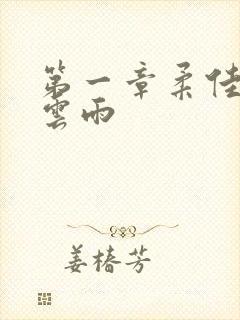 第一章柔佳
雲雨
姜椿芳